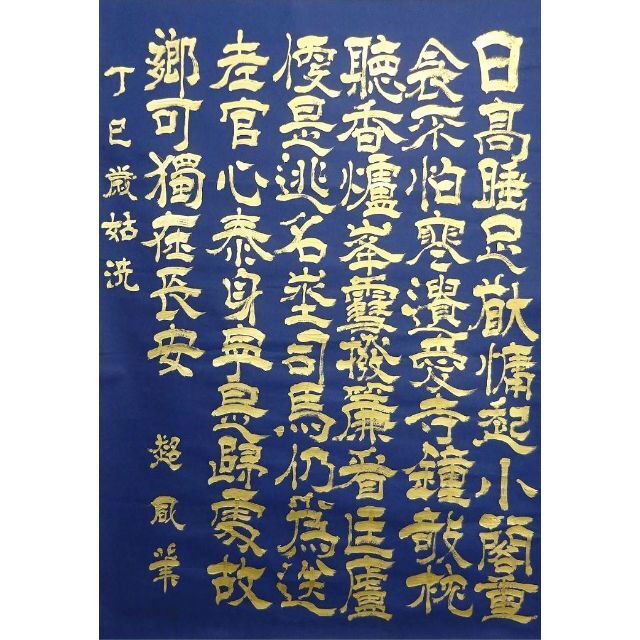 日高睡足猶慵起小閣重
衾不怕寒遺愛寺鐘敧枕
聽香爐峯雪撥簾看匡廬
便是逃名地司馬仍爲送
老官心泰身寧是歸處故
鄉可獨在長安
丁巳歲姑洗
超風筆